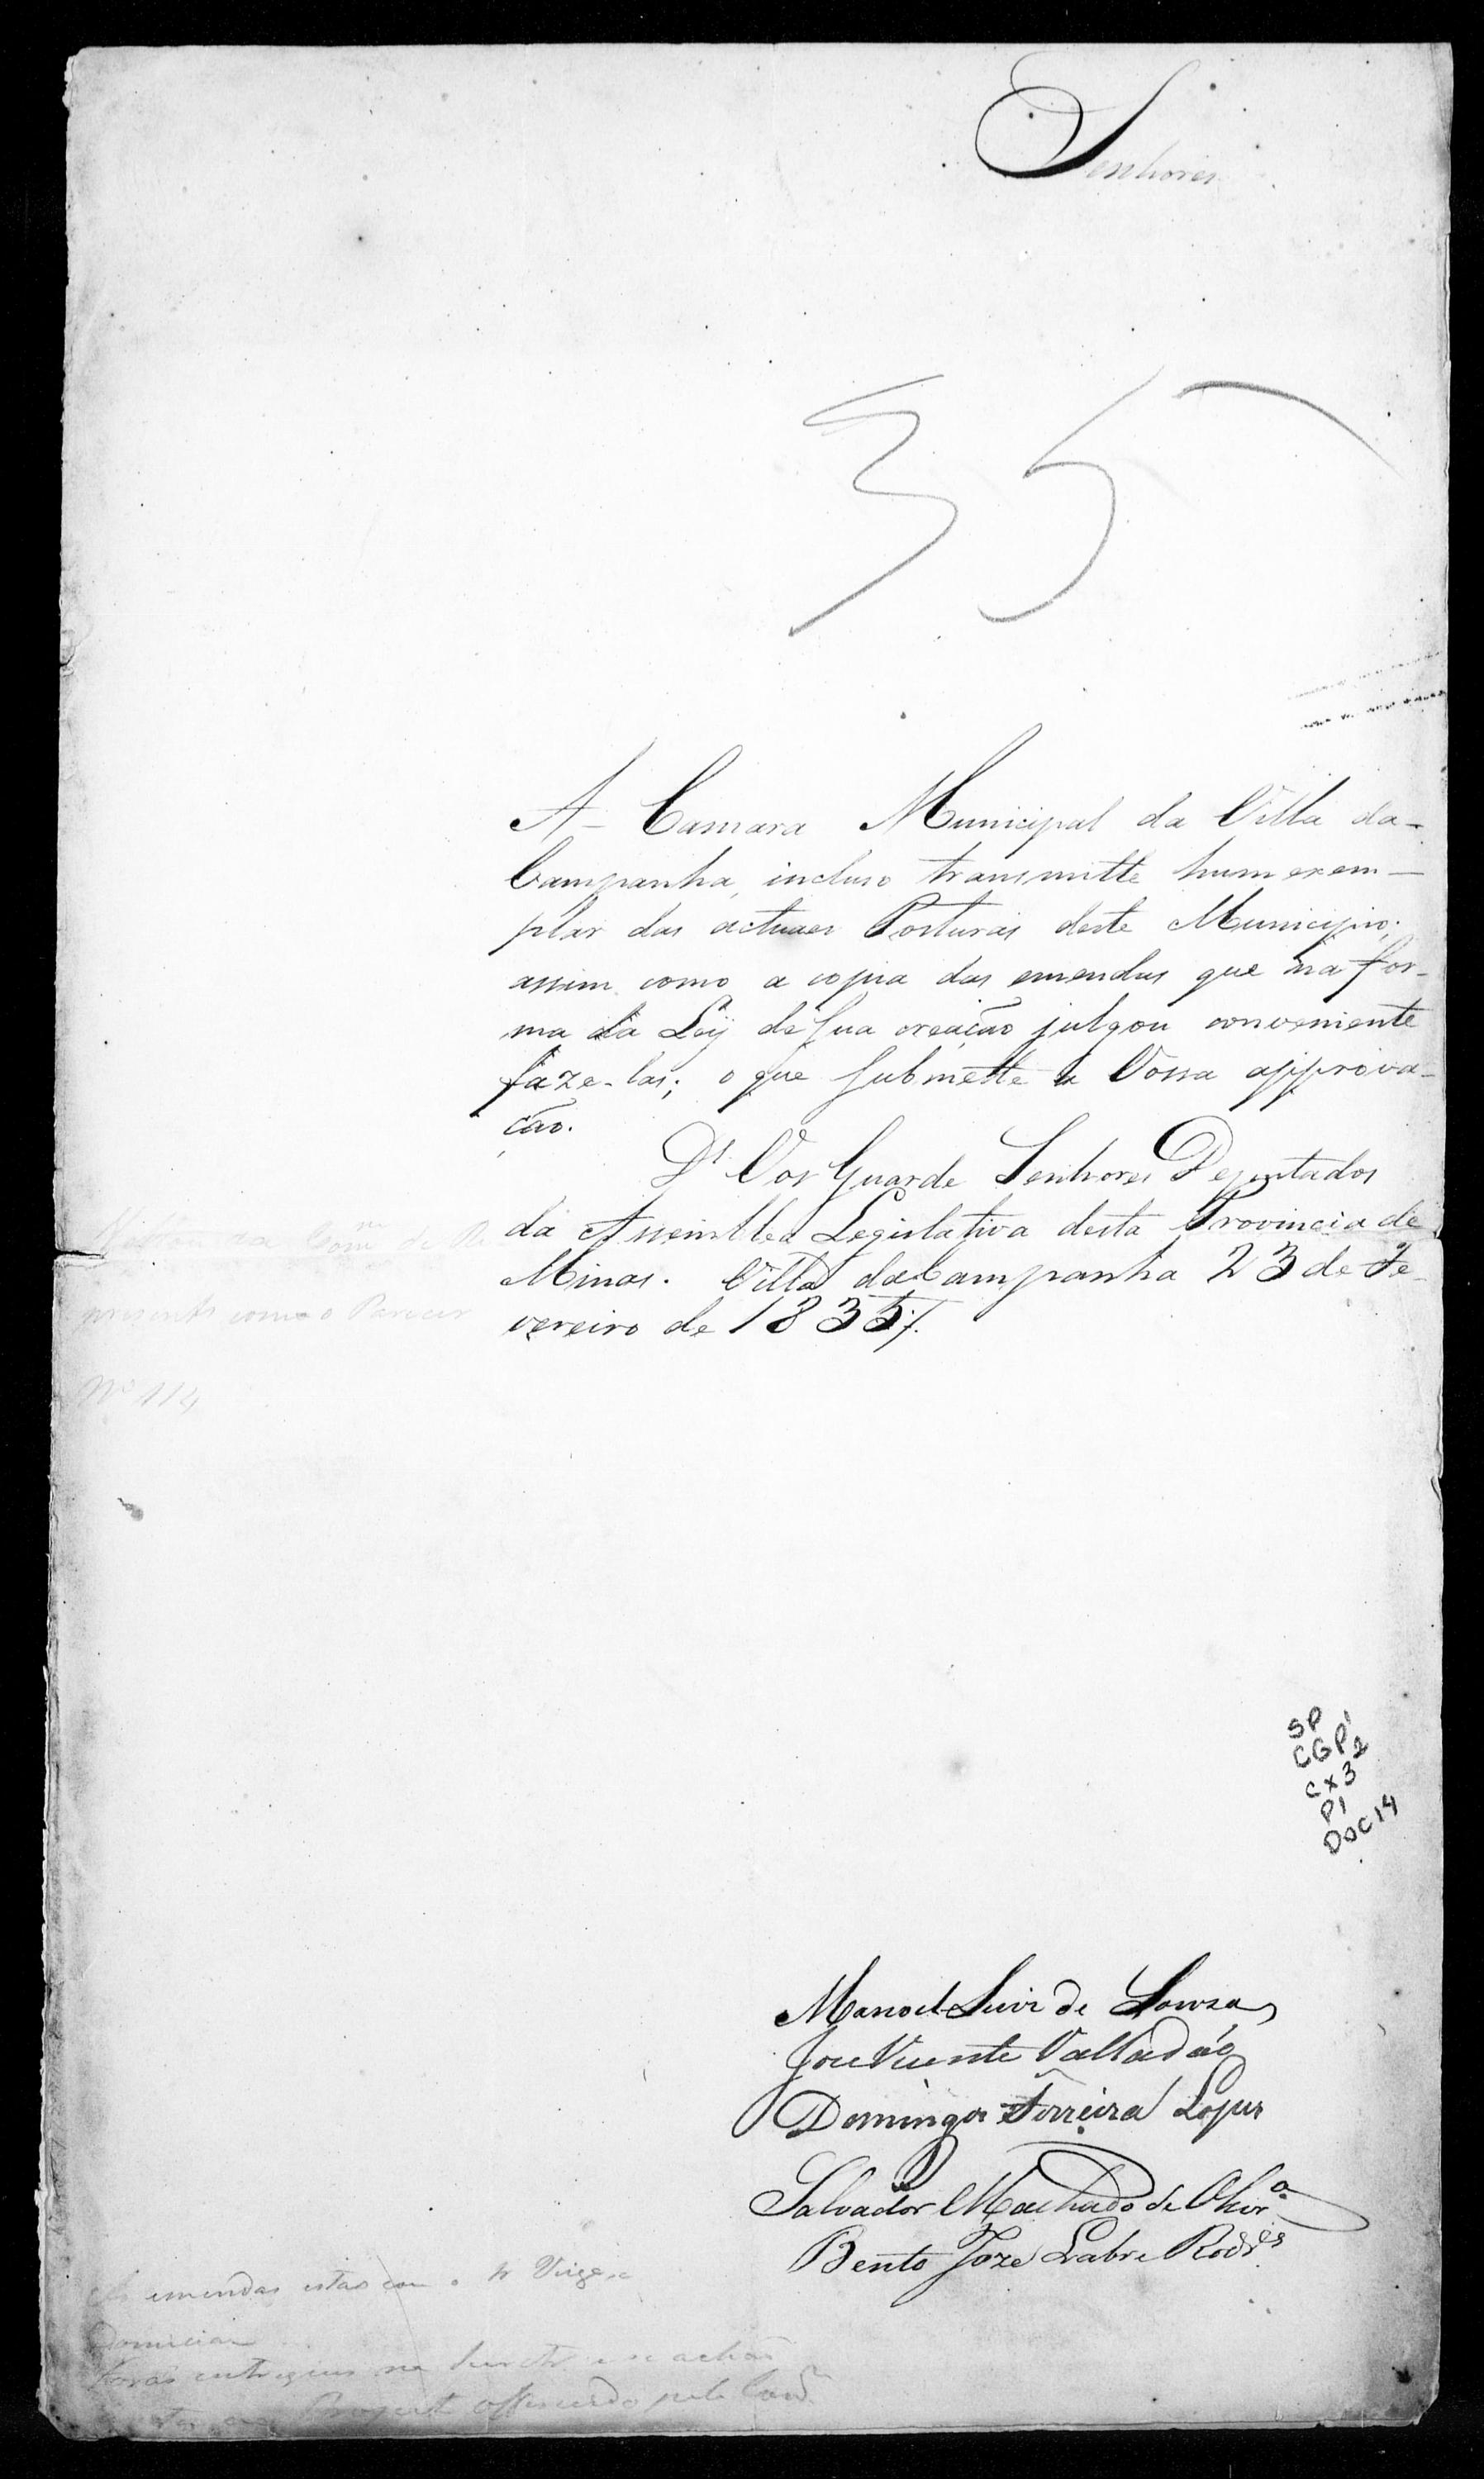 Senhores
35
A Camara Municipal da Villa da
Campanha, incluso transmitte hum exem-
plar das actuaes Posturas deste Municipio;
assim como a copia das emendas que na for-
ma da Ley de sua creação julgou conveniente
faze-las; o que submette a Vossa approva-
ção.
Ds. Vos Guarde Senhores Deputados
da Assemblea Legislativa desta Provincia de
Minas. Villa da Campanha 23 de Fe-
vereiro de 1835
presente com o Parecer
No 114
SP
CGP1
CX32
P1
DOC 14
Manoel Luiz de Souza
Joze Vicente Valladão
Domingos Ferreira Lopes
Salvador Machado de Olivra.
Bento Joze Labre Rodres
As emendas estão com o Sr
Forão entregues na e se achão
Project offerecido pela Comm